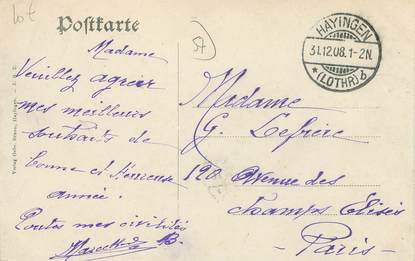 lot
Postkarte
57
HAYINGEN
31.12.08.1-2N.
*(LOTHR.)b
Madame
Veuillez agréer
mes meilleurs
souhaits de
bonne et Heureuse
année.
Toutes mes civilités
Madame
G. Lefrère
120 Avenue des
Champs Elisés
- Paris -